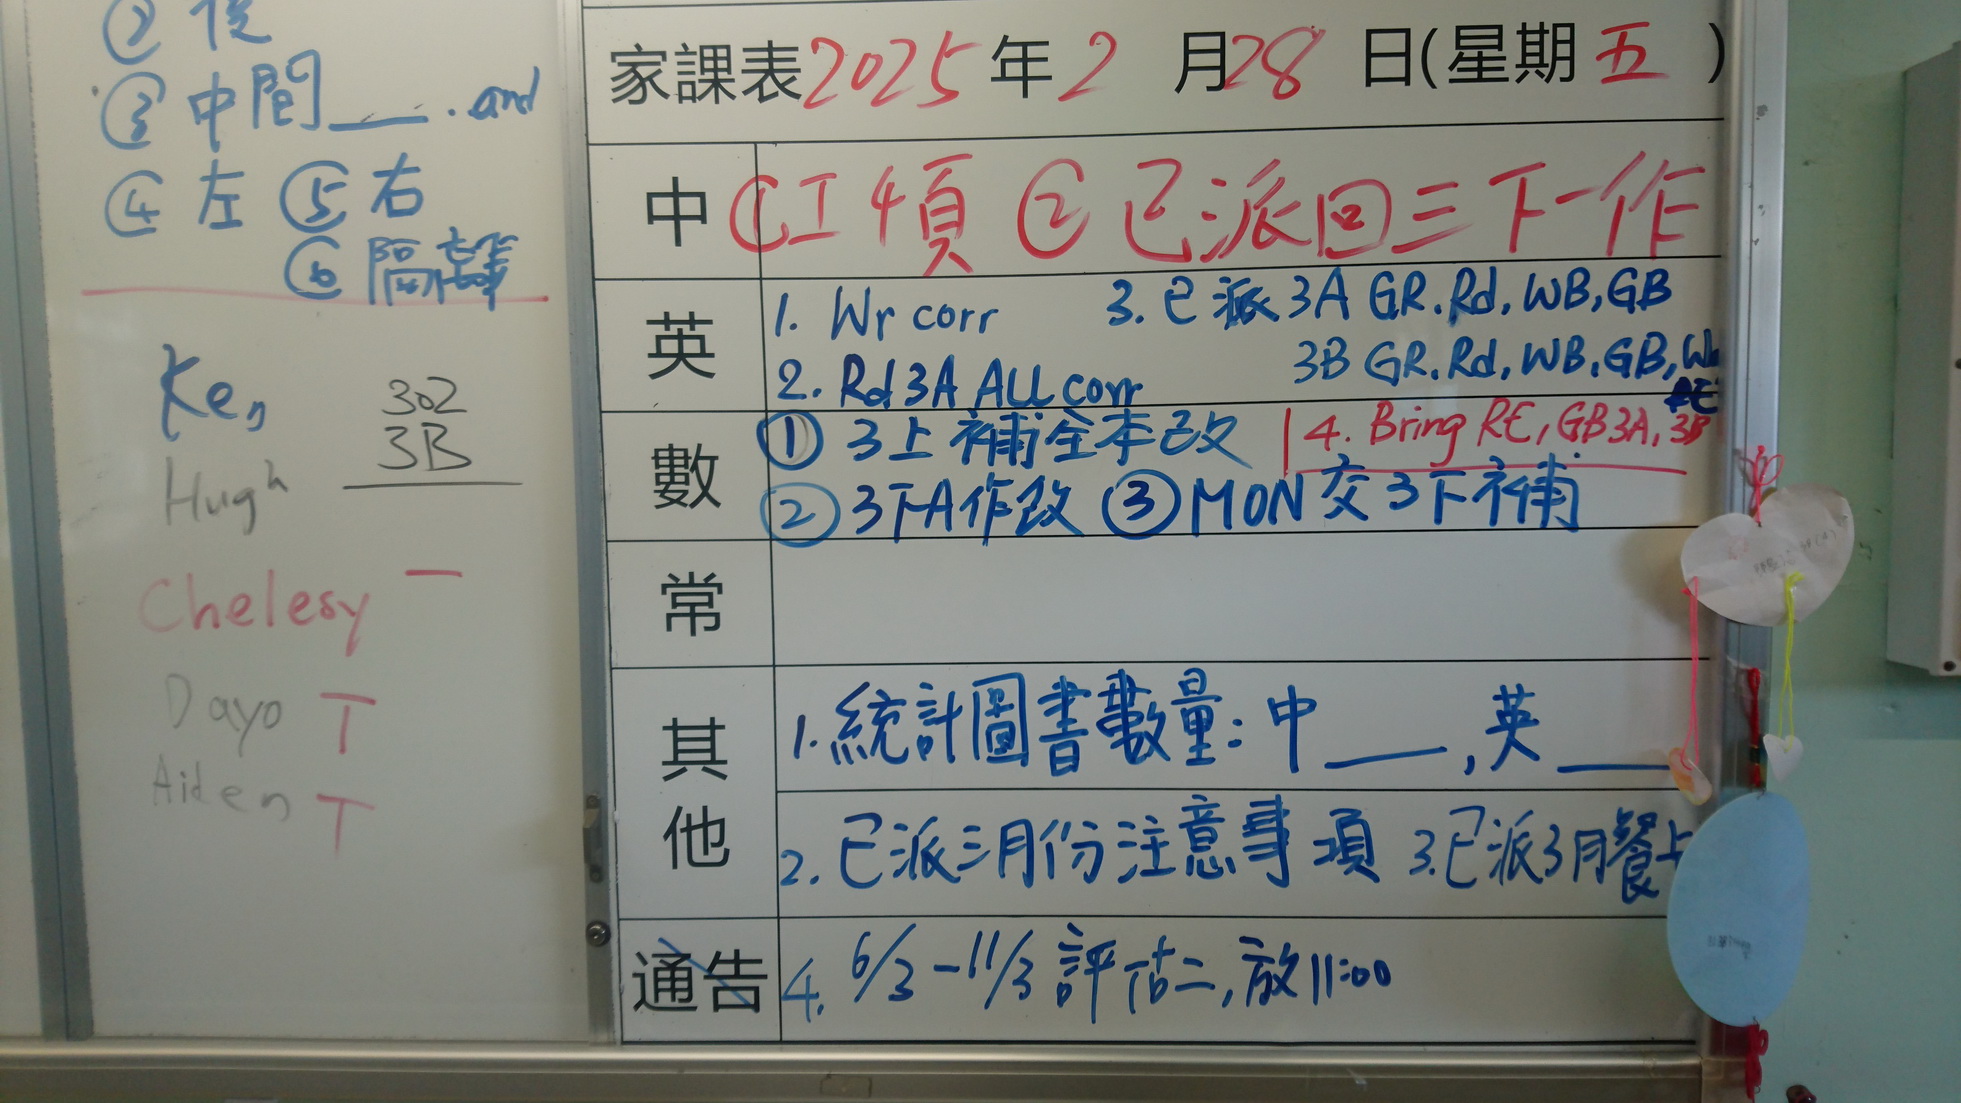 ② 後
③ 中間___. and
④ 左 ⑤ 右
⑥ 隔籬
Ken
302
3B
Hugh
Chelesy 一
Dayo T
Aiden T
家課表2025年2月28日(星期五)
中 ①工4頁 ②已派回三下一作
英 1. Wr corr 3. 已派3A GR.Rd, WB, GB
2. Rd 3A ALL corr 3B GR.Rd, WB.GB,
4. Bring RE, GB3A, 3B
數 ① 3上補全本改
② 3下A作改 ③ MON 交3下補
常
其他 1. 統計圖書數量：中___, 英___
2. 已派三月份注意事項 3. 已派3月餐
通告 4. 6/3-11/3 評估二, 放11:00